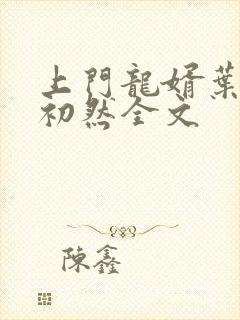 上門龍婿葉
初然全文
陳鑫